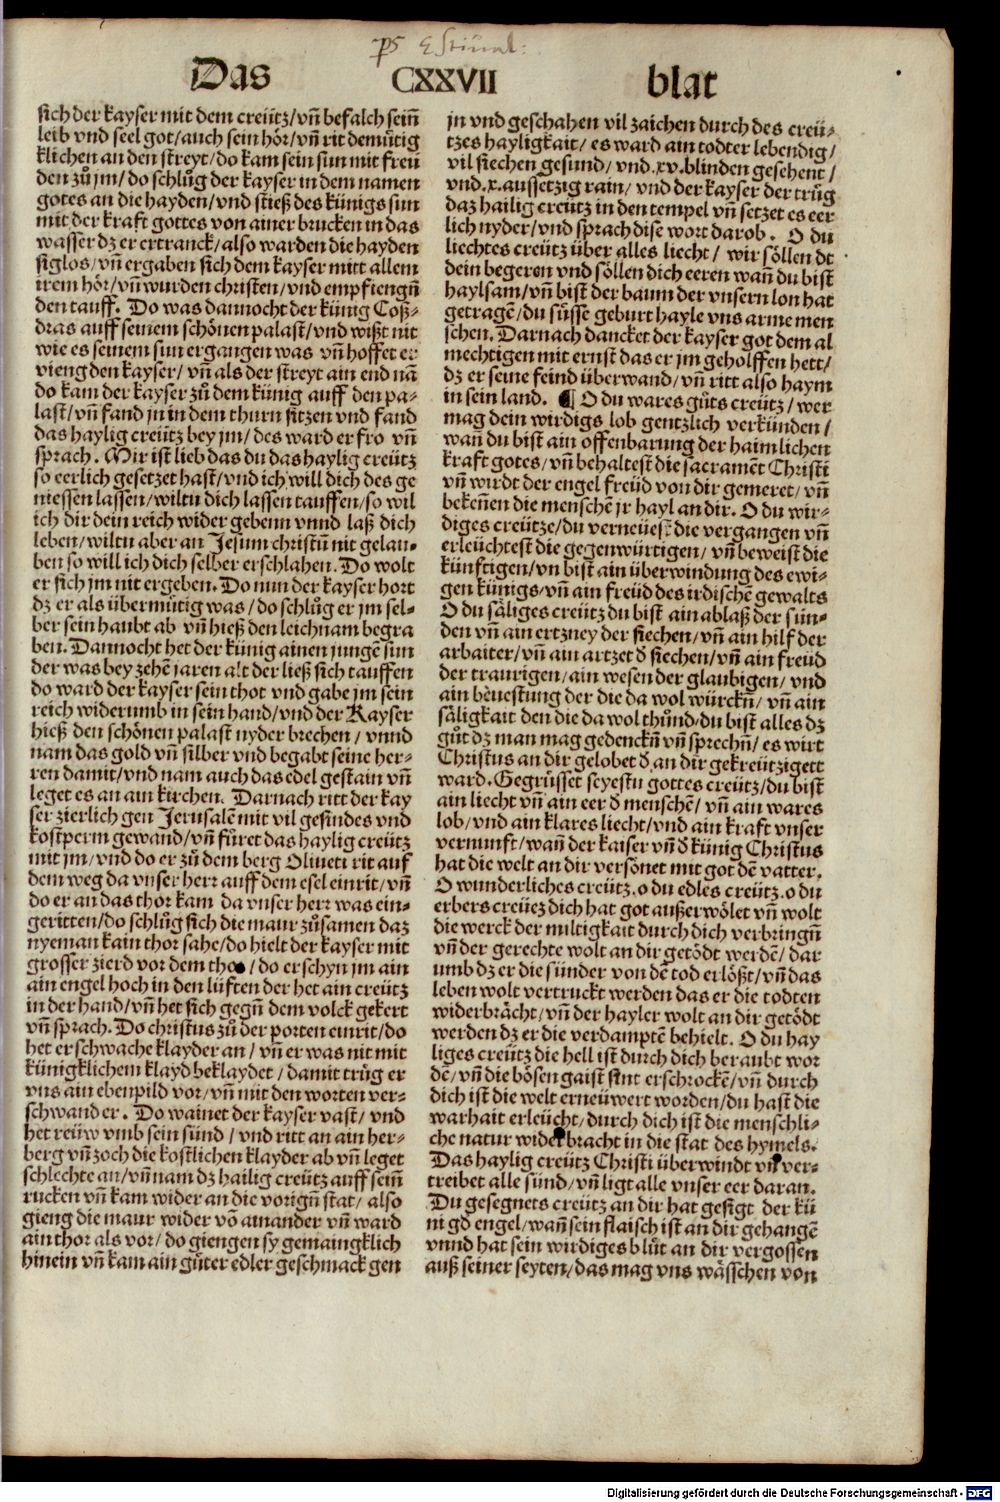 Das CXXVII blat
sich der kayser mit dem creütz/vñ befalch sein̄
leib vnd seel got/auch sein hör/vñ rit demütig
klichen an den streyt/do kam sein sun mit freü
den zů jm/do schlůg der kayser in dem namen
gotes an die hayden/vnd stieß des künigs sun
mit der kraft gottes von ainer brucken in das
wasser dz er ertranck/also warden die hayden
siglos/vñ ergaben sich dem kayser mitt allem
irem hör/vñ wurden christen/vnd empfiengn̄
den tauff. Do was dannocht der künig Coß-
dras auff seinem schönen palast/vnd wißt nit
wie es seinem sun ergangen was vñ hoffet er
vieng den kayser/vñ als der streyt ain end nā
do kam der kayser zů dem künig auff den pa-
last/vñ fand jn in dem thurn sitzen vnd fand
das haylig creütz bey jm/des ward er fro vñ
sprach. Mir ist lieb das du das haylig creütz
so eerlich gesetzet hast/vnd ich will dich des ge
niessen lassen/wiltu dich lassen tauffen/so wil
ich dir dein reich wider gebenn vnnd laß dich
leben/wiltu aber an Jesum christū nit gelau-
ben so will ich dich selber erschlahen. Do wolt
er sich jm nit ergeben. Do nun der kayser hort
dz er als übermütig was/do schlůg er jm sel-
ber sein haubt ab vñ hieß den leichnam begra
ben. Dannocht het der künig ainen jungē sun
der was bey zehē jaren alt der ließ sich tauffen
do ward der kayser sein thot vnd gabe jm sein
reich widerumb in sein hand/vnd der Kayser
hieß den schönen palast nyder brechen/vnnd
nam das gold vñ silber vnd begabt seine her-
ren damit/vnd nam auch das edel gestain vñ
leget es an ain kirchen. Darnach ritt der kay
ser zierlich gen Jerusalē mit vil gesindes vnd
kostperm gewand/vñ fůret das haylig creütz
mit jm/vnd do er zů dem berg Oliueti rit auf
dem weg da vnser herr auff dem esel einrit/vñ
do er an das thor kam da vnser herr was ein-
geritten/do schlůg sich die maur zůsamen daz
nyeman kain thor sahe/do hielt der kayser mit
grosser zierd vor dem tho/do erschyn jm ain
ain engel hoch in den lüften der het ain creütz
in der hand/vñ het sich gegn̄ dem volck gekert
vñ sprach. Do christus zů der porten einrit/do
het er schwache klayder an/vñ er was nit mit
künigklichem klayd beklaydet/damit trůg er
vns ain ebenpild vor/vñ mit den worten ver-
schwand er. Do wainet der kayser vast/vnd
het reüw vmb sein sünd/vnd ritt an ain her-
berg vñ zoch die kostlichen klayder ab vñ leget
schlechte an/vñ nam dz hailig creütz auff sein̄
rucken vñ kam wider an die vorign̄ stat/also
gieng die maur wider vō ainander vñ ward
ain thor als vor/do giengen sy gemaingklich
hinein vñ kam ain gůter edler geschmack gen
jn vnd geschahen vil zaichen durch des creü-
tzes hayligkait/es ward ain todter lebendig/
vil siechen gesund/vnd.xv.blinden gesehent/
vnd.x.aussetzig rain/vnd der kayser der trůg
daz hailig creütz in den tempel vñ setzet es eer
lich nyder/vnd sprach dise wort darob. O du
liechtes creütz über alles liecht/wir söllen dt
dein begeren vnd söllen dich eeren wañ du bist
haylsam/vñ bist der baum der vnsern lon hat
getragē/du süsse geburt hayle vns arme men
schen. Darnach dancket der kayser got dem al
mechtigen mit ernst das er jm geholffen hett/
dz er seine feind überwand/vñ ritt also haym
in sein land. ¶ O du wares gůts creütz/wer
mag dein wirdigs lob gentzlich verkünden/
wañ du bist ain offenbarung der haimlichen
kraft gotes/vñ behaltest die sacramēt Christi
vñ wirdt der engel freüd von dir gemeret/vñ
bekeñen die menschē jr hayl an dir. O du wir-
diges creütze/du verneüest die vergangen vñ
erleüchtest die gegenwürtigen/vñ beweist die
künftigen/vn bist ain überwindung des ewi-
gen künigs/vñ ain freüd des irdischē gewalts
O du säliges creütz du bist ain ablaß der sün-
den vñ ain ertzney der siechen/vñ ain hilf der
arbaiter/vñ ain artzet đ siechen/vñ ain freüd
der traurigen/ain wesen der glaubigen/vnd
ain bèuestung der die da wol würckn̄/vñ ain
säligkait den die da wol thůnd/du bist alles dz
gůt dz man mag gedenckn̄ vñ sprechn̄/es wirt
Christus an dir gelobet đ an dir gekreützigett
ward. Gegrüsset seyestu gottes creütz/du bist
ain liecht vñ ain eer đ menschē/vñ ain wares
lob/vnd ain klares liecht/vnd ain kraft vnser
vernunft/wañ der kaiser vñ đ künig Christus
hat die welt an dir versönet mit got dē vatter.
O wunderliches creütz.o du edles creütz.o du
erbers creüez dich hat got außerwölet vñ wolt
die werck der miltigkait durch dich verbringn̄
vñ der gerechte wolt an dir getödt werdē/dar
umb dz er die sünder von dē tod erlößt/vñ das
leben wolt vertruckt werden das er die todten
widerbrächt/vñ der hayler wolt an dir getödt
werden dz er die verdamptē behielt. O du hay
liges creütz die hell ist durch dich beraubt wor
dē/vñ die bösen gaist sint erschrockē/vñ durch
dich ist die welt erneüwert worden/du hast die
warhait erleücht/durch dich ist die menschli-
che natur widerbracht in die stat des hymels.
Das haylig creütz Christi überwindt vñ ver-
treibet alle sünd/vñ ligt alle vnser eer daran.
Du gesegnets creütz an dir hat gesigt der kü
nigđ engel/wañ sein flaisch ist an dir gehangē
vnnd hat sein wirdiges blůt an dir vergossen
auß seiner seyten/das mag vns wässchen von
Digitalisierung gefördert durch die Deutsche Forschungsgemeinschaft - DFG